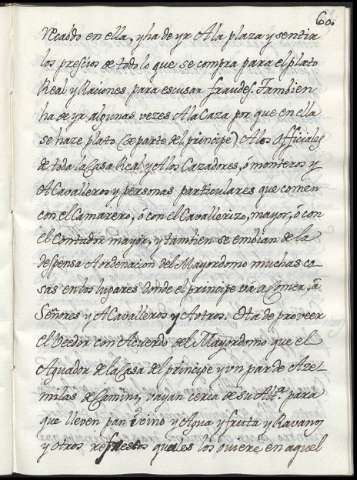 60.
recado en ella, y ha de yr A la plaza y sentir
los presçios de todo lo que se compra para el plato
Real y Raciones para escusar fraudes. Tambien
ha de yr algunas vezes A la Caza por que en ella
se haze plato (de parte del principe) A los officiales
de toda la Casa Real y A los Cazadores, ó monteros y
A Cavalleros y personas particulares que comen
con el Camarero, ó con el Cavallerizo, mayor, ó con
el Contador mayor, y tambien se embian de la
despensa A ordenacion del Mayordomo muchas co
sas en los lugares donde el principe va a Comer, á
Señores y A Cavalleros y Aotros. Ha de proveer
el Veedor con Acuerdo del Mayordomo que el
Aguador de la Casa del principe y vn par de Aze
milas de Camino, vayan cerca de su Altª. para
que lleven pan vino y Agua y fruta y Ravanos
y otros refrescos quales los quiere en aquel